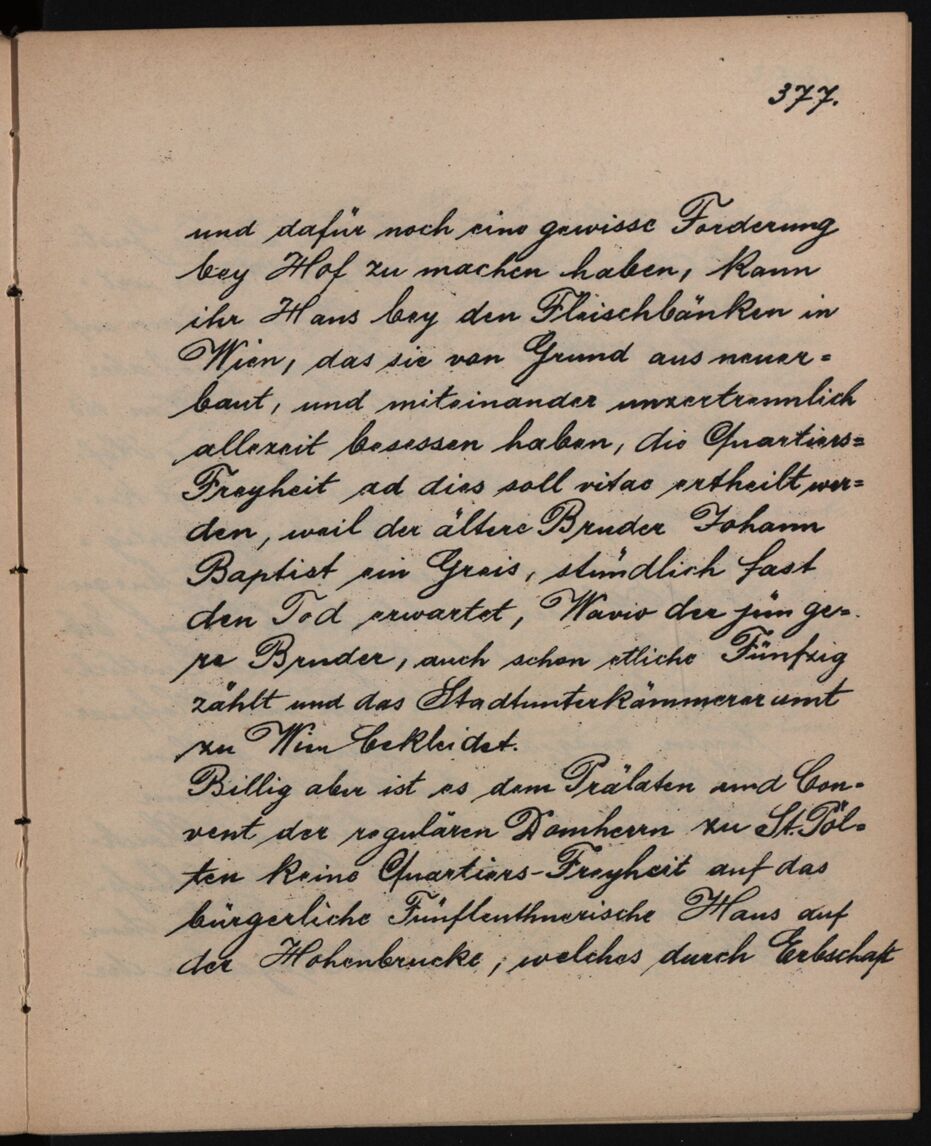 377.
und dafür noch eine gewisse Forderung
bey Hof zu machen haben, kann
ihr Haus bey den Fleischbänken in
Wien, das sie von Grund aus neuer=
baut, und miteinander unzertrennlich
allezeit besessen haben, die Quartiers=
Freyheit ad dies soll vitae ertheilt wer=
den, weil der ältere Bruder Johann
Baptist ein Greis, stündlich fast
den Tod erwartet, der jünge=
re Bruder, auch schon etliche Fünfzig
zählt und das Stadtunterkämmereramt
zu Wien bekleidet.
Billig aber ist es dem Prälaten und Con=
vent der regulären Domherrn zu St. Pöl=
ten keine Quartiers-Freyheit auf das
bürgerliche Haus auf
der Hohenbrucke, welches durch Erbschaft